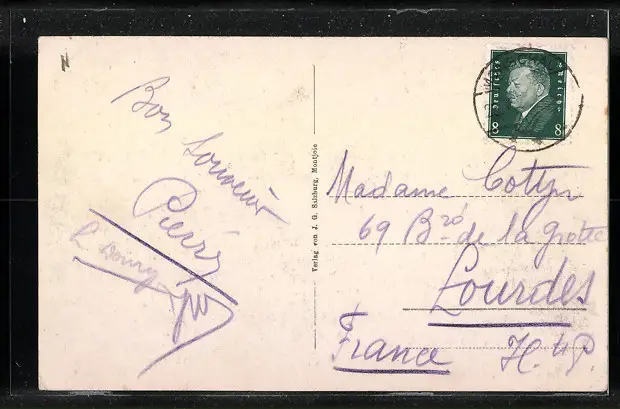 Bon Souvenir
Pierre
Verlag von J. G. Salzburg, Montjoie
Deutsches Reich
8 8
Madame
69 Brd de la grotte
Lourdes
France H. P.